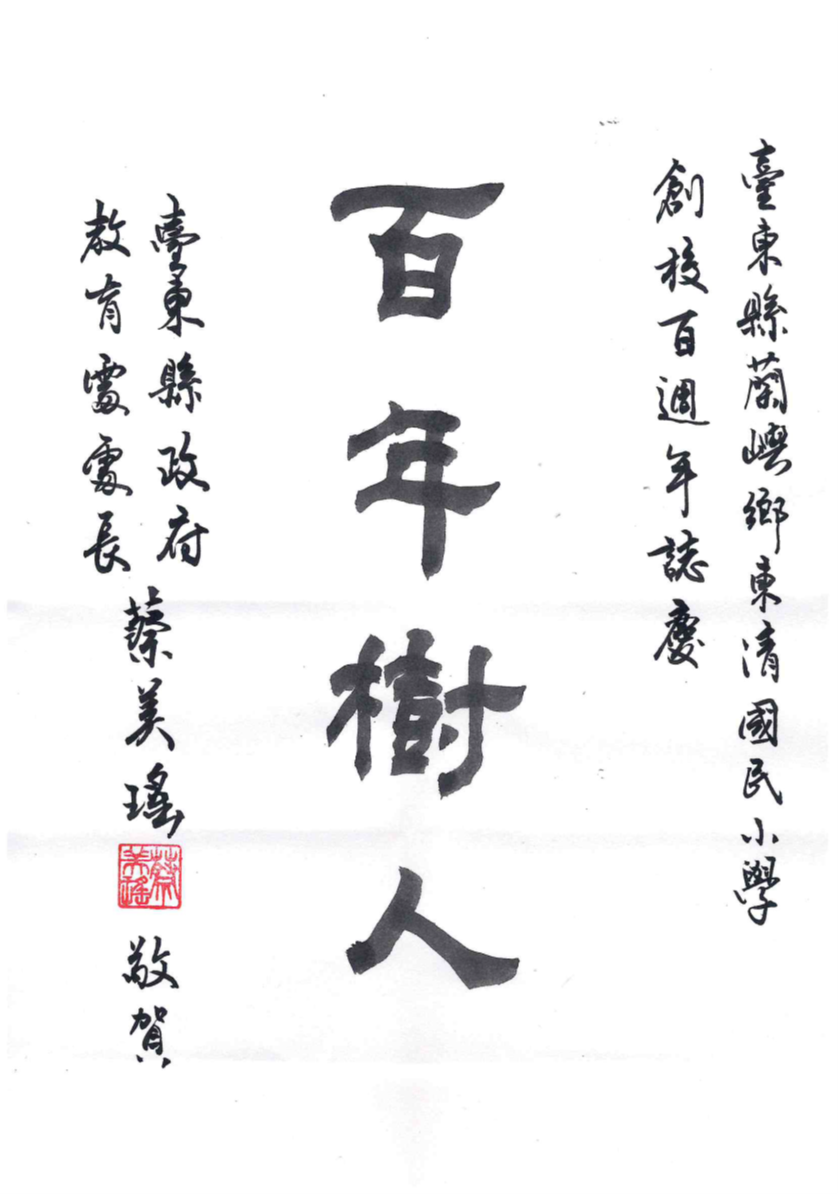 臺東縣蘭嶼鄉東清國民小學
創校百週年誌慶
百年樹人
臺東縣政府
教育處處長
蔡美瑤
蔡美瑤
敬賀